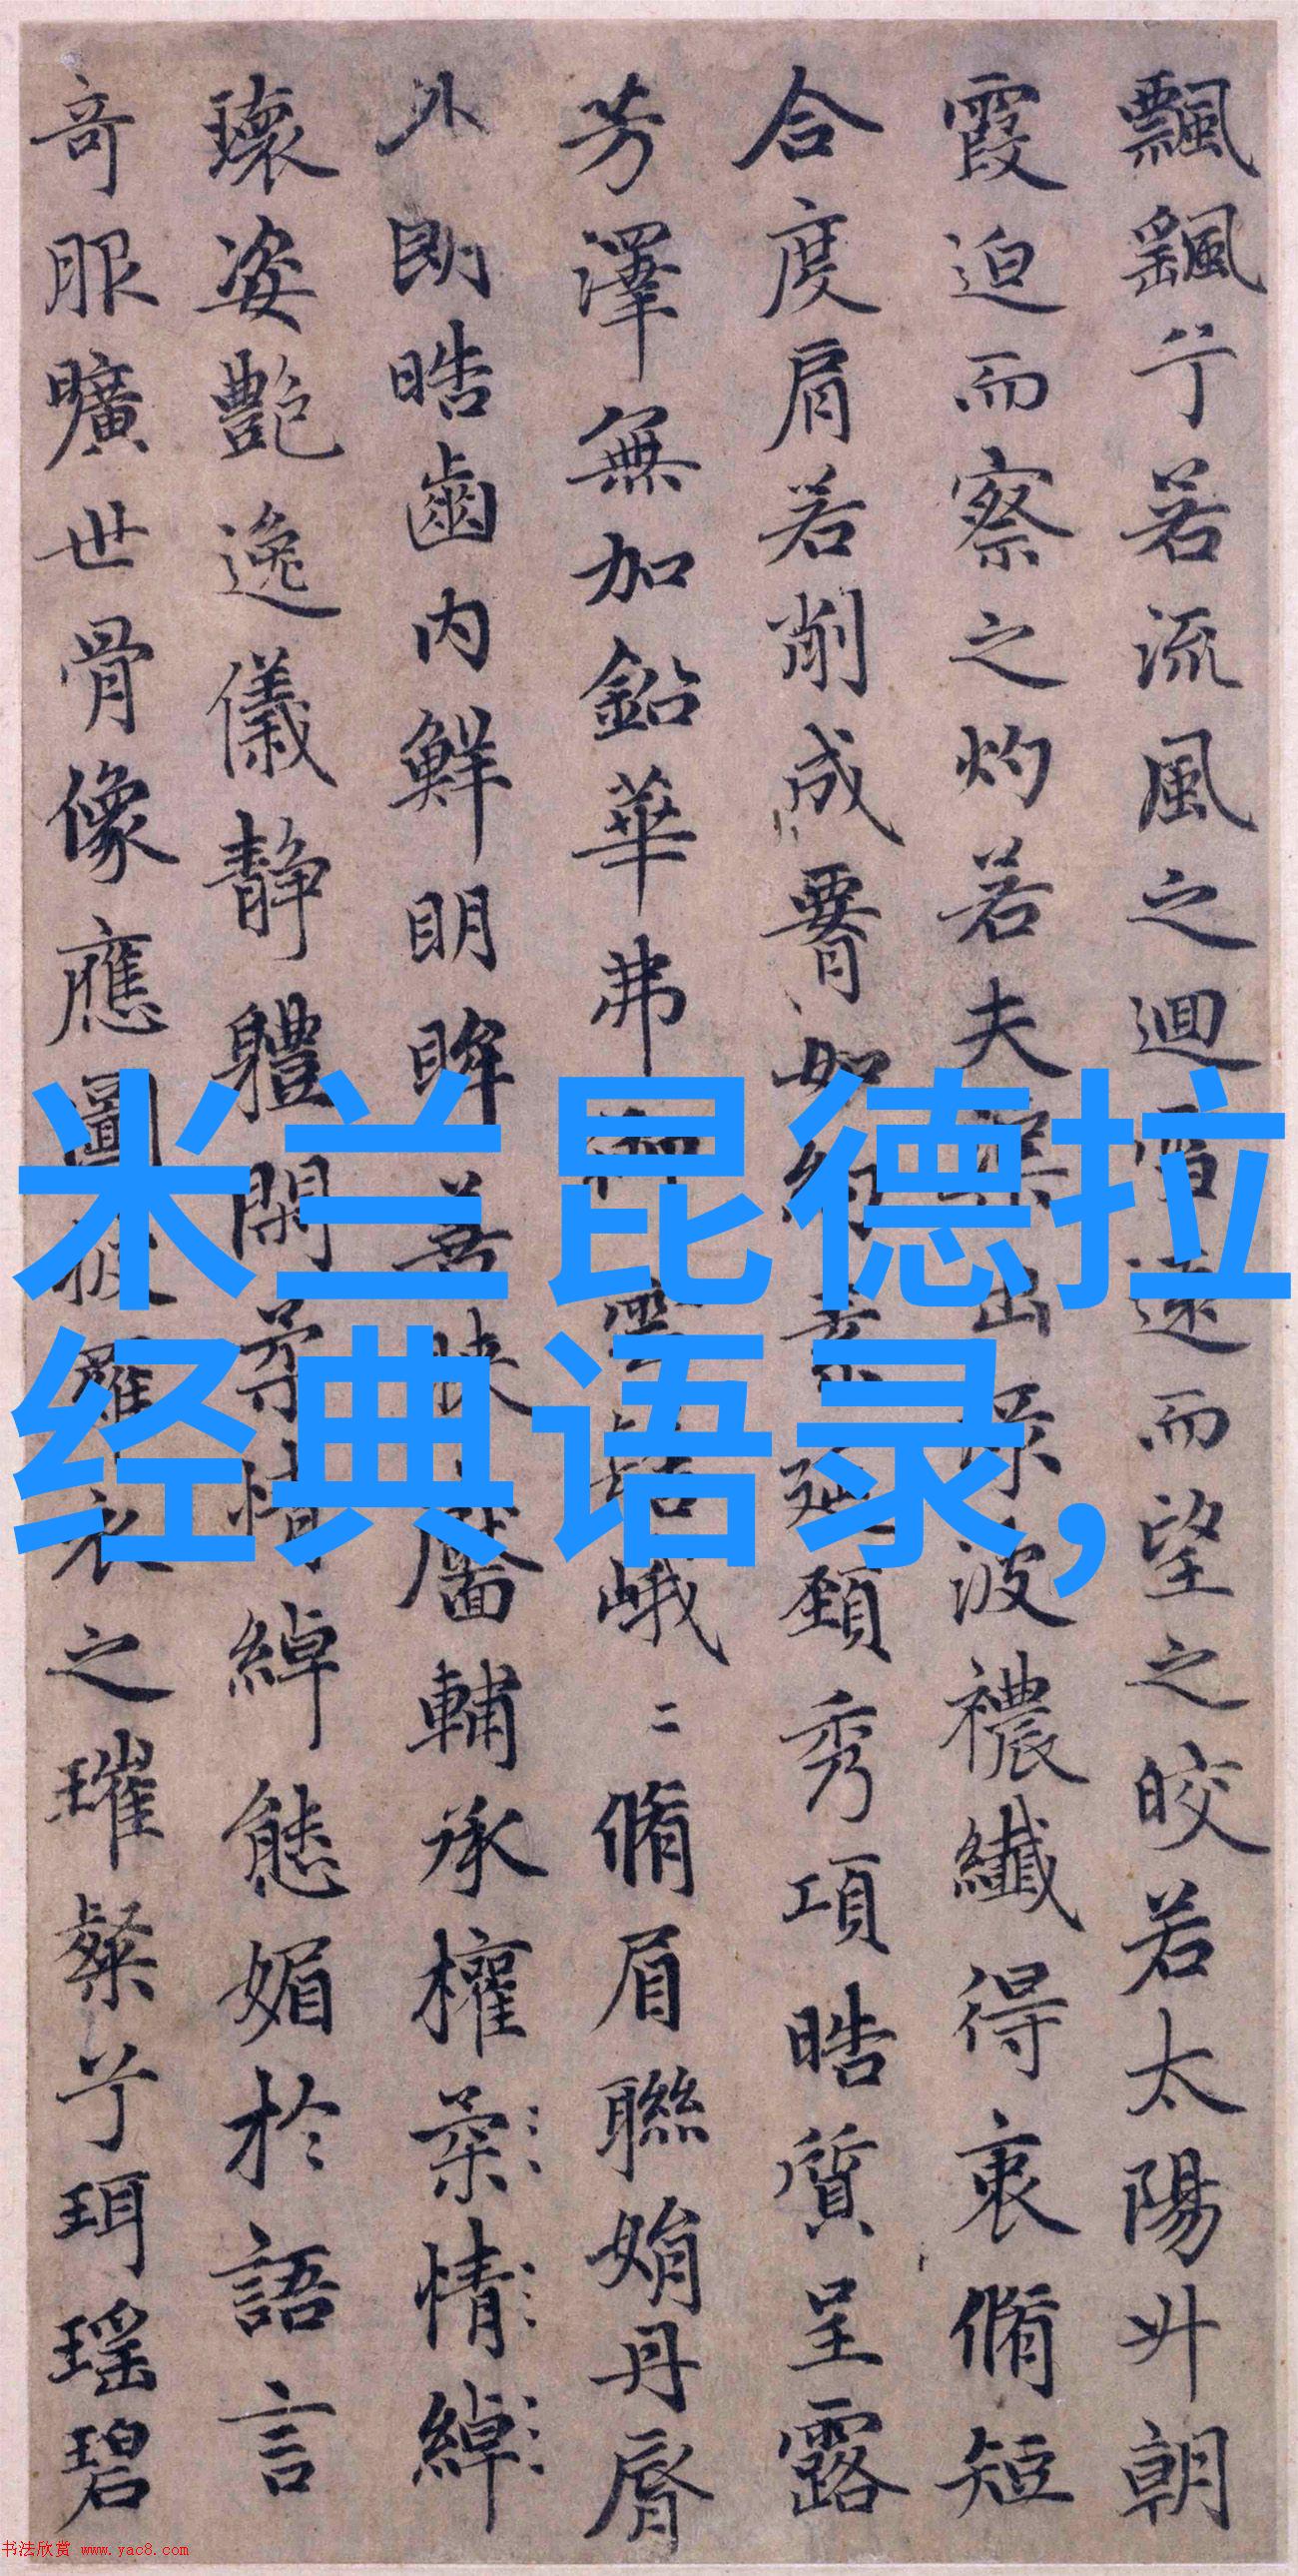 飄颻兮若流風之迴雪遠而望之皎若太陽升朝
霞迫而察之灼若夫渠出渌波襛纖得衷脩短
合度肩若削成要如約素延頸秀項皓質呈露
芳澤無加鉛華弗御雲髻峨二脩眉聯娟丹脣
外朗皓齒内鮮明眸善睞靨輔承權柔情綽
瓌姿艷逸儀静體閑柔情綽態媚於語言
奇服曠世骨像應圖披羅衣之璀粲兮珥瑶碧
米兰昆德拉
经典语录,
书法欣赏 www.yac8.com